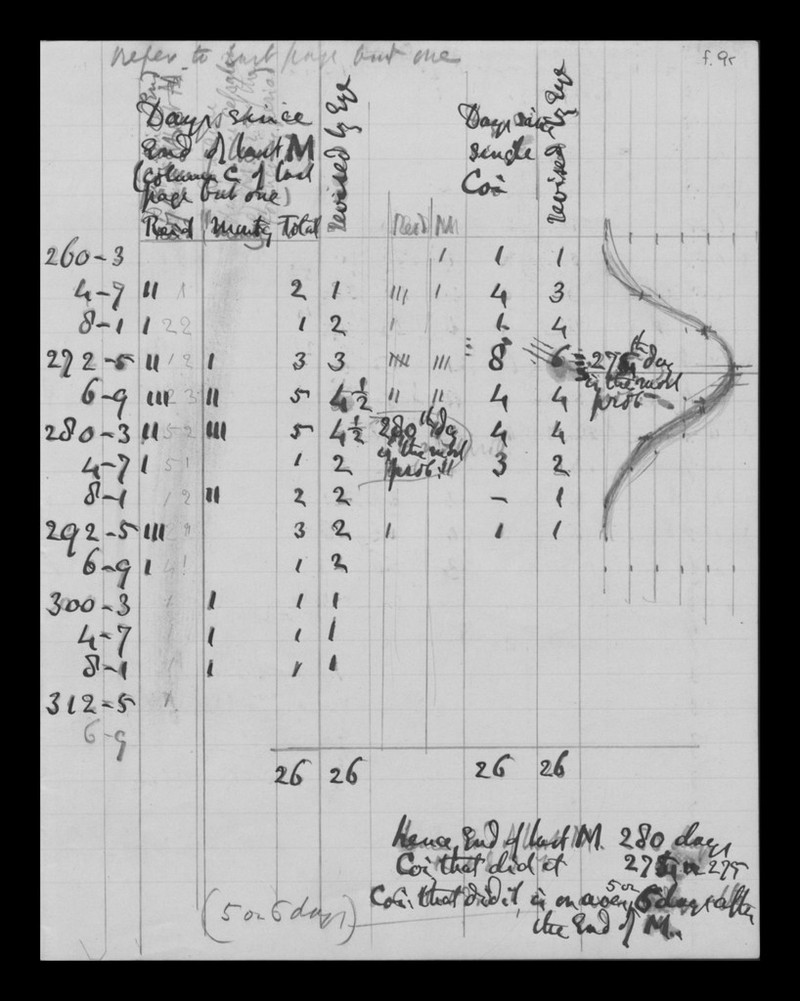 refer to last page but one
f. 9r
Days since
End of last M
(column C of last
page but one)
revised by Eye
Days since
single
Coi
revised by Eye
Reid Murphy Total Reid M
260-3 1 1 1
4-7 11 1 2 1 111 1 4 3
8-1 1 22 1 2 1 1 4
272-5 11 12 1 3 3 1111 111 8 6 275th day
is the most
prob
6-9 111 23 11 5 4½ 11 11 4 4
280-3 11 52 111 5 4½ 280th day 4 4
is the most
prob!!
4-7 1 51 1 2 3 2
8-1 12 11 2 2 - 1
292-5 111 3 2 1 1 1
6-9 1 1 2
300-3 1 1 1
4-7 1 1 1
8-1 1 1 1
312-5
6-9
26 26 26 26
Hence End of last M. 280 days
Coi that did it 275 or 275
Coi: that did it, is on aver 5 or 6 days after
the End of M.
(5 or 6 days)